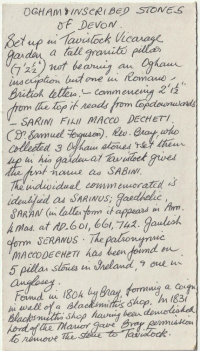 OGHAM & INSCRIBED STONES
OF DEVON.
Set up in Tavistock Vicarage
garden a tall granite pillar
(7' 2½") not bearing an Ogham
inscription but one in Romano-
British letters. - commencing 2' 1½
from the top it reads from top downwards
- SARINI FILII MACCO DECHETI,
(Dr. Samuel Ferguson). Rev. Bray, who
collected 3 Ogham stones & set them
up in his garden at Tavistock gives
the first name as SABINI.
The individual commemorated is
identified as SARINUS; Gaedhelic,
SARAN (in latter form it appears in Ann.
4 Mas. at AD. 601, 661, 742. Gaulish
form SERANUS - The patronymic
MACCODECHETI has been found on
5 pillar stones in Ireland, & one in
Anglesey.
Found in 1804 by Bray, forming a coign
in wall of a Blacksmith's Shop. In 1831
Blacksmith's shop having been demolished,
Lord of the Manor gave Bray permission
to remove the stone to Tavistock.